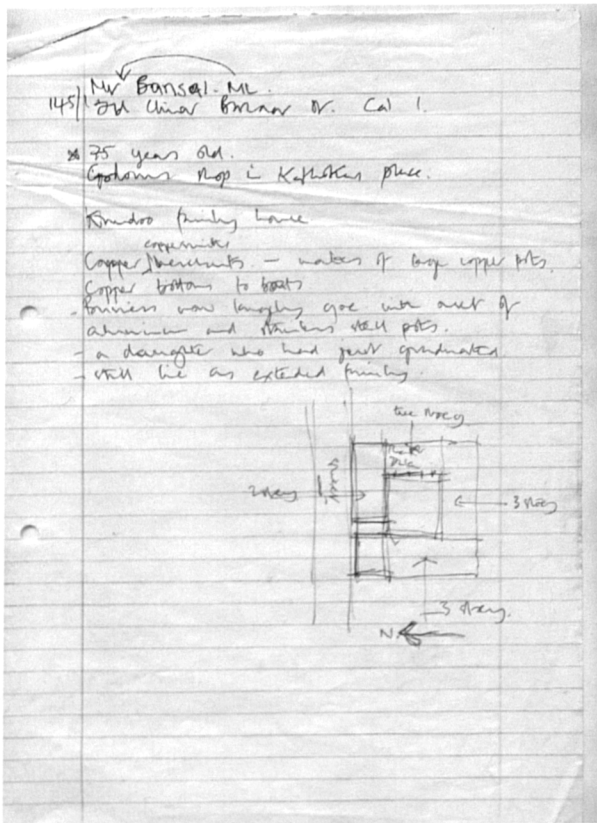 Mr Bansal. ML.
145/1 Old China Bazaar St. Cal 1.
* 75 years old.
shop in place.
family house
coppersmiths
Copper / merchants. – makers of large copper pots.
Copper bottoms to boats
- Business now largely gone with out of
aluminium and stainless steel pots.
- a daughter who had just graduated
- still live as extended family.
two storey
Street
2 storey
3 storey
3 storey.
N